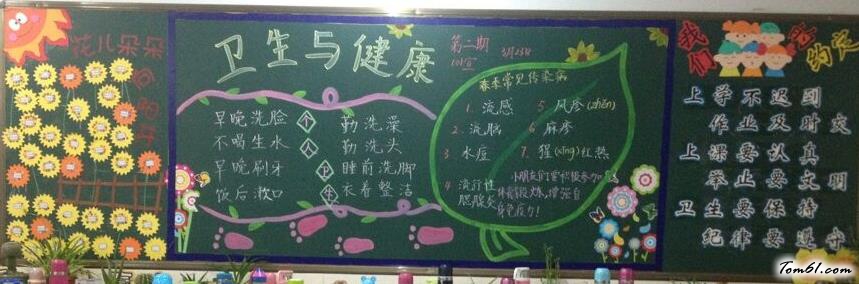 花儿朵朵
向阳开
卫生与健康
第二期
3月23日
早晚洗脸
不喝生水
早晚刷牙
饭后漱口
个
人
卫
生
勤洗澡
勤洗头
睡前洗脚
衣着整洁
春季常见传染病
1. 流感
2. 流脑
3 水痘
4 流行性
腮腺炎
5 风疹(zhěn)
6 麻疹
7. 猩(xīng)红热
小朋友们要积极参加
体育锻炼，增强自
身免疫力！
我们的约定
上学不迟到
作业及时交
上课要认真
举止要文明
卫生要保持
纪律要遵守
Tom61.com